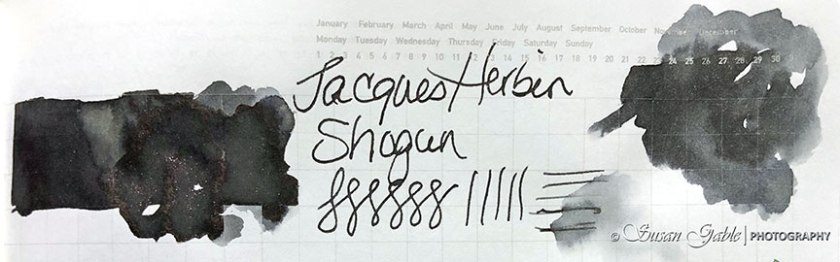 January February March April May June July August September October November December
Monday Tuesday Wednesday Thursday Friday Saturday Sunday
1 2 3 4 5 6 7 8 9 10 11 12 13 14 15 16 17 18 19 20 21 22 23 24 25 26 27 28 29 30
Jacques Herbin
Shogun
© Susan Gable | PHOTOGRAPHY